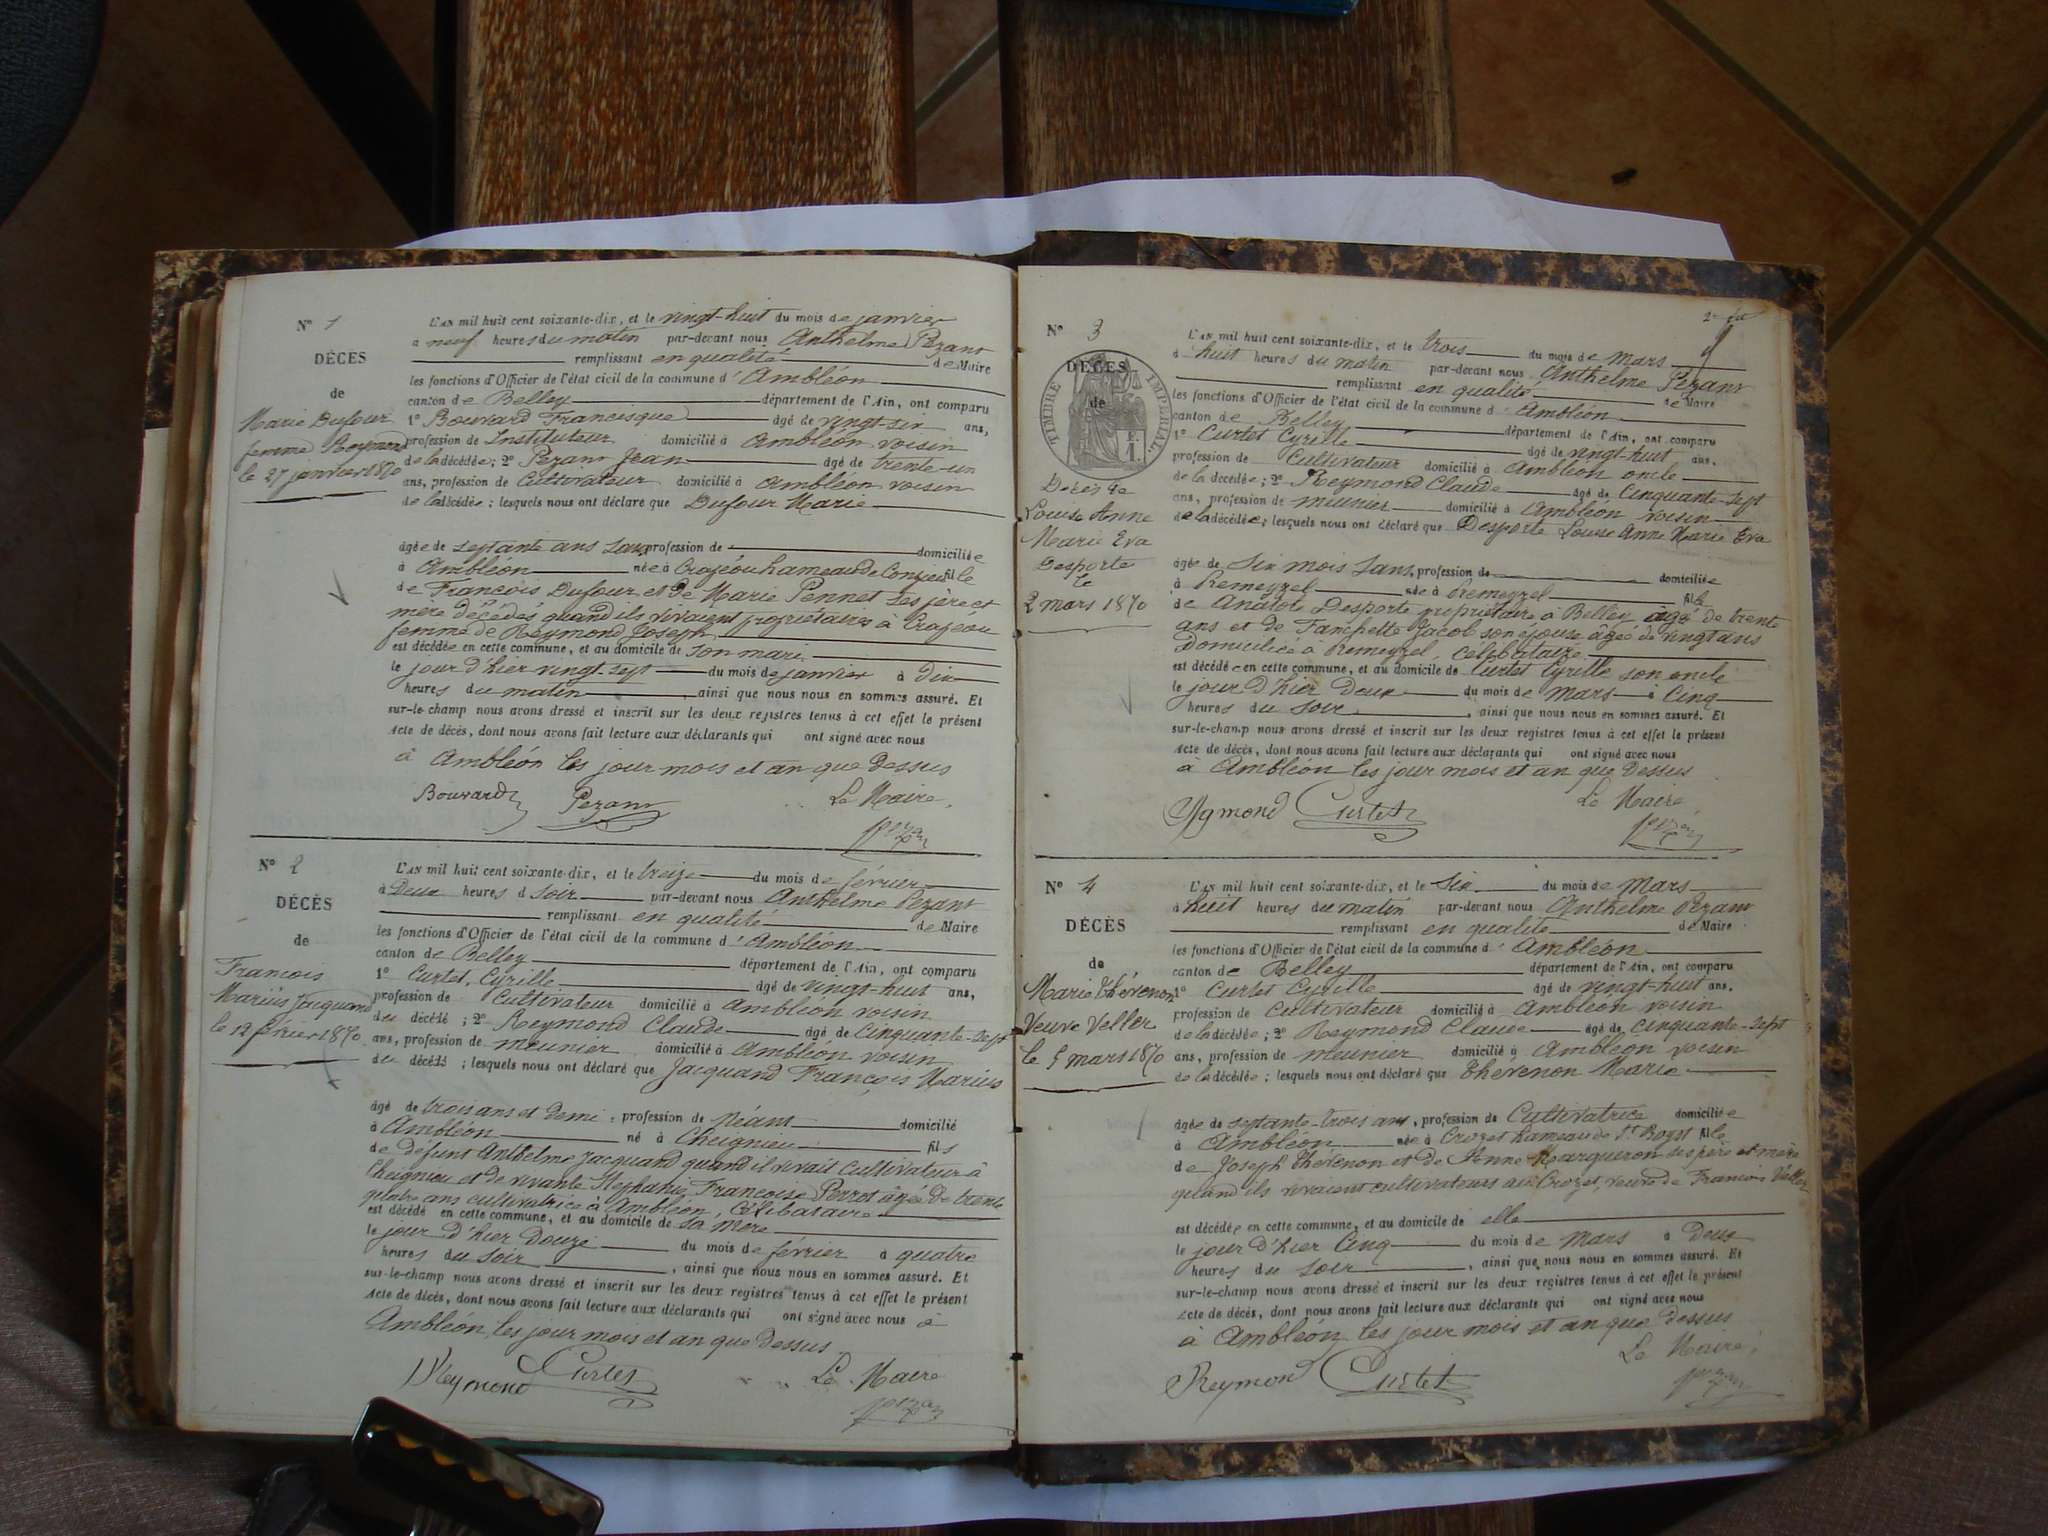 N° 1
DÉCÈS
de
Marie Dufour
femme Reymond
le 27 janvier 1870
L'AN mil huit cent soixante-dix, et le vingt-huit du mois de janvier
à neuf heures du matin par-devant nous Anthelme Pezant
remplissant en qualité de Maire
les fonctions d'Officier de l'état civil de la commune d'Ambléon
canton de Belley département de l'Ain, ont comparu
1° Bouvard Francisque âgé de vingt-six ans,
profession de Instituteur domicilié à Ambléon voisin
de la décédée; 2° Pezant Jean âgé de trente-un
ans, profession de Cultivateur domicilié à Ambléon voisin
de la décédée; lesquels nous ont déclaré que Dufour Marie
âgée de septante ans sans profession de domiciliée
à Ambléon née à Crajéou hameau de Conzieu fille
de François Dufour et de Marie Pennet ses père et
mère décédés quand ils vivaient propriétaires à Crajéou
femme de Reymond Joseph
est décédée en cette commune, et au domicile de son mari
le jour d'hier vingt-sept du mois de janvier à Dix
heures du matin, ainsi que nous nous en sommes assuré. Et
sur-le-champ nous avons dressé et inscrit sur les deux registres tenus à cet effet le présent
acte de décès, dont nous avons fait lecture aux déclarants qui ont signé avec nous
à Ambléon les jour mois et an que dessus
Bouvard Pezant Le Maire,
Pezant
N° 2
DÉCÈS
de
François
Mariüs Jacquand
le 12 février 1870
L'AN mil huit cent soixante-dix, et le treize du mois de février
à Deux heures d soir par-devant nous Anthelme Pezant
remplissant en qualité de Maire
les fonctions d'Officier de l'état civil de la commune d'Ambléon
canton de Belley département de l'Ain, ont comparu
1° Curtet, Cyrille âgé de vingt-huit ans,
profession de Cultivateur domicilié à Ambléon voisin
du décédé; 2° Reymond Claude âgé de Cinquante-Sept
ans, profession de meunier domicilié à Ambléon voisin
du décédé; lesquels nous ont déclaré que Jacquand François Marius
âgé de trois ans et demi, profession de Néant domicilié
à Ambléon né à Cheignieu fils
de défunt Anthelme Jacquand quand il vivait Cultivateur à
Cheignieu et de vivante Stephanie Françoise Perrot âgée de trente
quatre ans cultivatrice à Ambléon, Célibataire
est décédé en cette commune, et au domicile de sa mère
le jour d'hier Douze du mois de février à quatre
heures du soir, ainsi que nous nous en sommes assuré. Et
sur-le-champ nous avons dressé et inscrit sur les deux registres tenus à cet effet le présent
acte de décès, dont nous avons fait lecture aux déclarants qui ont signé avec nous à
Ambléon, les jour mois et an que dessus
Reymond Curtet Le Maire
Pezant
N° 3
DÉCÈS
de
TIMBRE IMPÉRIAL
F. 1.
Décès de
Louise Anne
Marie Eva
Desporte
le
2 mars 1870
L'AN mil huit cent soixante-dix, et le trois du mois de mars
à huit heures du matin par-devant nous Anthelme Pezant
remplissant en qualité de Maire
les fonctions d'Officier de l'état civil de la commune d'Ambléon
canton de Belley département de l'Ain, ont comparu
1° Curtet Cyrille âgé de vingt-huit ans.
profession de Cultivateur domicilié à Ambléon oncle
de la décédée; 2° Reymond Claude âgé de Cinquante-sept
ans, profession de meunier domicilié à Ambléon voisin
de la décédée; lesquels nous ont déclaré que Desporte Louise Anne Marie Eva
âgée de Six mois sans, profession de domiciliée
à Premeyzel née à Premeyzel fille
de Anatole Desporte propriétaire à Belley âgé de trente
ans et de Fanchette Jacob son épouse âgée de vingt ans
Domiciliée à Premeyzel, Célibataire
est décédée en cette commune, et au domicile de Curtet Cyrille son oncle
le jour d'hier Deux du mois de mars à Cinq
heures du soir, ainsi que nous nous en sommes assuré. Et
sur-le-champ nous avons dressé et inscrit sur les deux registres tenus à cet effet le présent
acte de décès, dont nous avons fait lecture aux déclarants qui ont signé avec nous
à Ambléon les jour mois et an que Dessus
Reymond Curtet Le Maire
Pezant
N° 4
DÉCÈS
de
Marie Thévenon
Veuve Vellet
le 5 mars 1870
L'AN mil huit cent soixante-dix, et le Six du mois de Mars
à huit heures du matin par-devant nous Anthelme Pezant
remplissant en qualité de Maire
les fonctions d'Officier de l'état civil de la commune d'Ambléon
canton de Belley département de l'Ain, ont comparu
1° Curtet Cyrille âgé de vingt-huit ans.
profession de Cultivateur domicilié à Ambléon voisin
de la décédée; 2° Reymond Claude âgé de Cinquante-Sept
ans, profession de meunier domicilié à Ambléon voisin
de la décédée; lesquels nous ont déclaré que Thévenon Marie
âgée de septante-trois ans, profession de Cultivatrice domiciliée
à Ambléon née à Crozet hameau de St Bogst fille
de Joseph Thévenon et de Anne Marqueron ses père et mère
quand ils vivaient cultivateurs au Crozet, veuve de François Vellet
est décédée en cette commune, et au domicile de elle
le jour d'hier Cinq du mois de Mars à Deux
heures du soir, ainsi que nous nous en sommes assuré. Et
sur-le-champ nous avons dressé et inscrit sur les deux registres tenus à cet effet le présent
acte de décès, dont nous avons fait lecture aux déclarants qui ont signé avec nous
à Ambléon, les jour mois et an que dessus
Le Maire,
Reymond Curtet Pezant